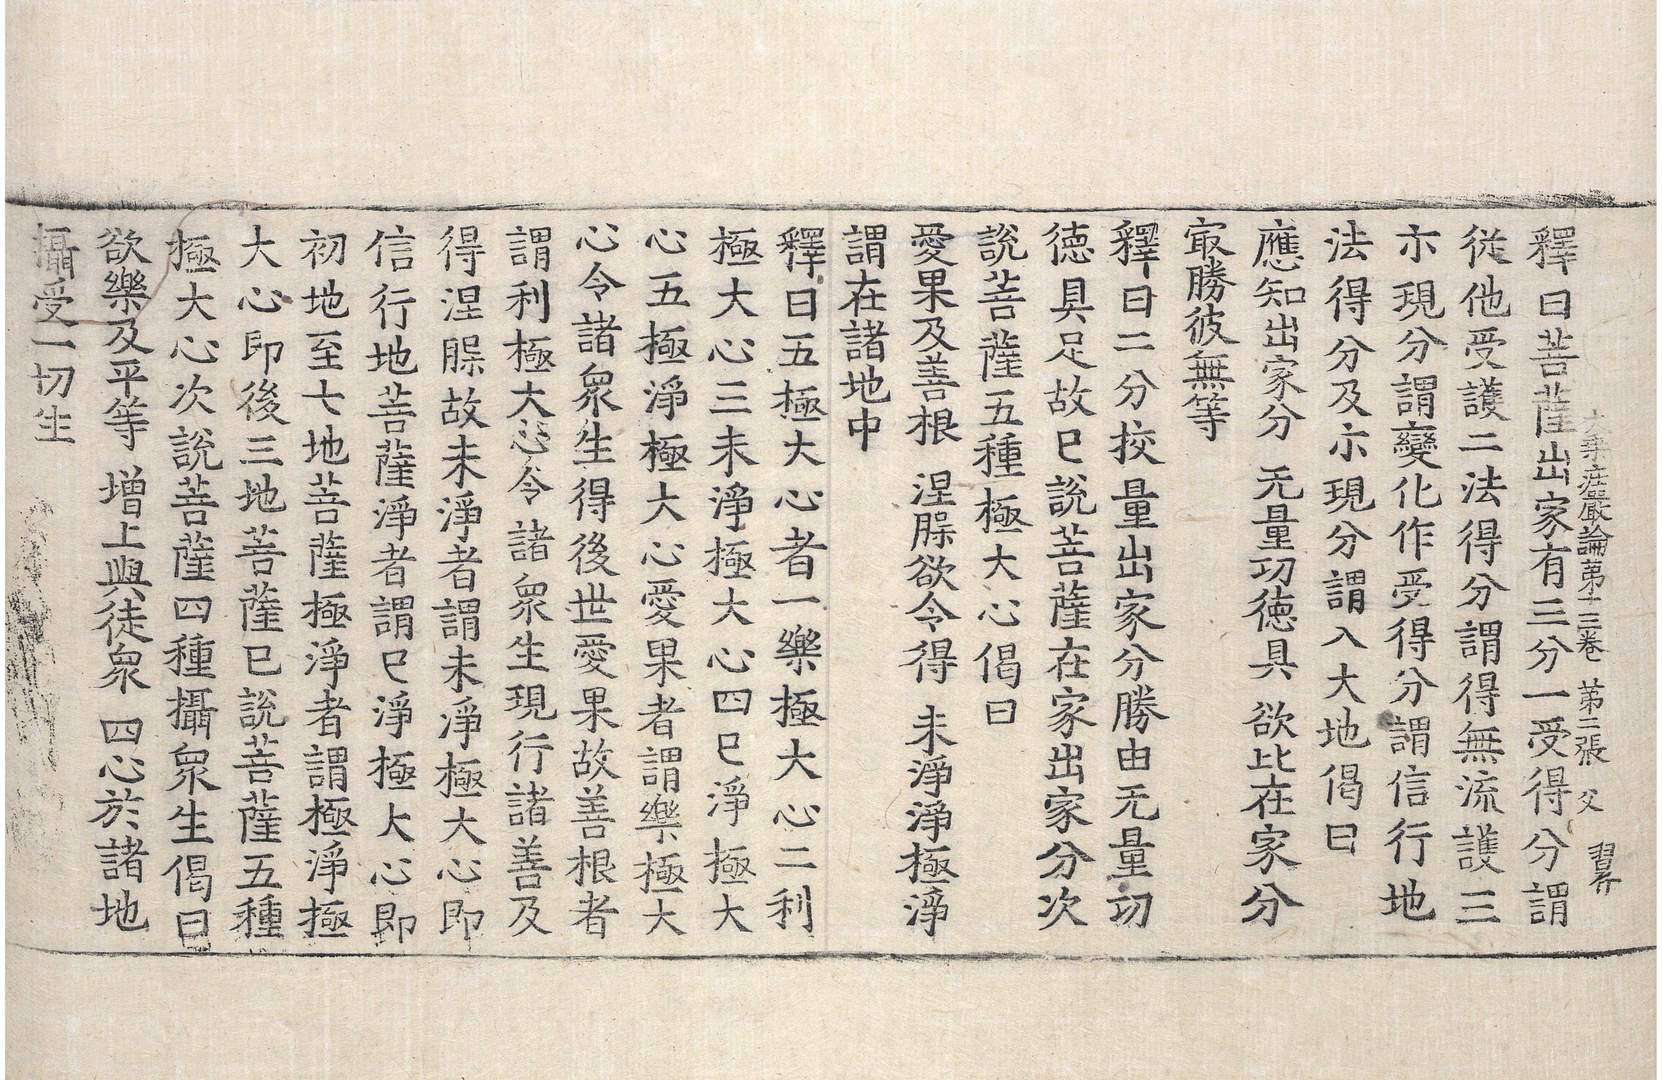 大乘庄嚴論第十三卷 第二張 父
釋曰菩薩出家有三分一受得分謂
從他受護二法得分謂得無流護三
示現分謂變化作受得分謂信行地
法得分及示現分謂入大地偈曰
應知出家分 无量功德具 欲比在家分
冣勝彼無等
釋曰二分挍量出家分勝由无量功
德具足故已說菩薩在家出家分次
說菩薩五種極大心偈曰
愛果及善根 涅槃欲令得 未淨淨極淨
謂在諸地中
釋曰五極大心者一樂極大心二利
極大心三未淨極大心四已淨極大
心五極淨極大心愛果者謂樂極大
心令諸衆生得後世愛果故善根者
謂利極大心令諸衆生現行諸善及
得涅槃故未淨者謂未淨極大心即
信行地菩薩淨者謂已淨極大心即
初地至七地菩薩極淨者謂極淨極
大心即後三地菩薩已說菩薩五種
極大心次說菩薩四種攝衆生偈曰
欲樂及平等 增上與徒衆 四心於諸地
攝受一切生